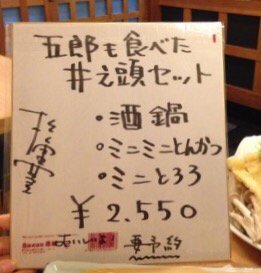 五郎も食べた
井之頭セット
・酒鍋
・ミニミニとんかつ
・ミニとろろ
¥2.550
要予約